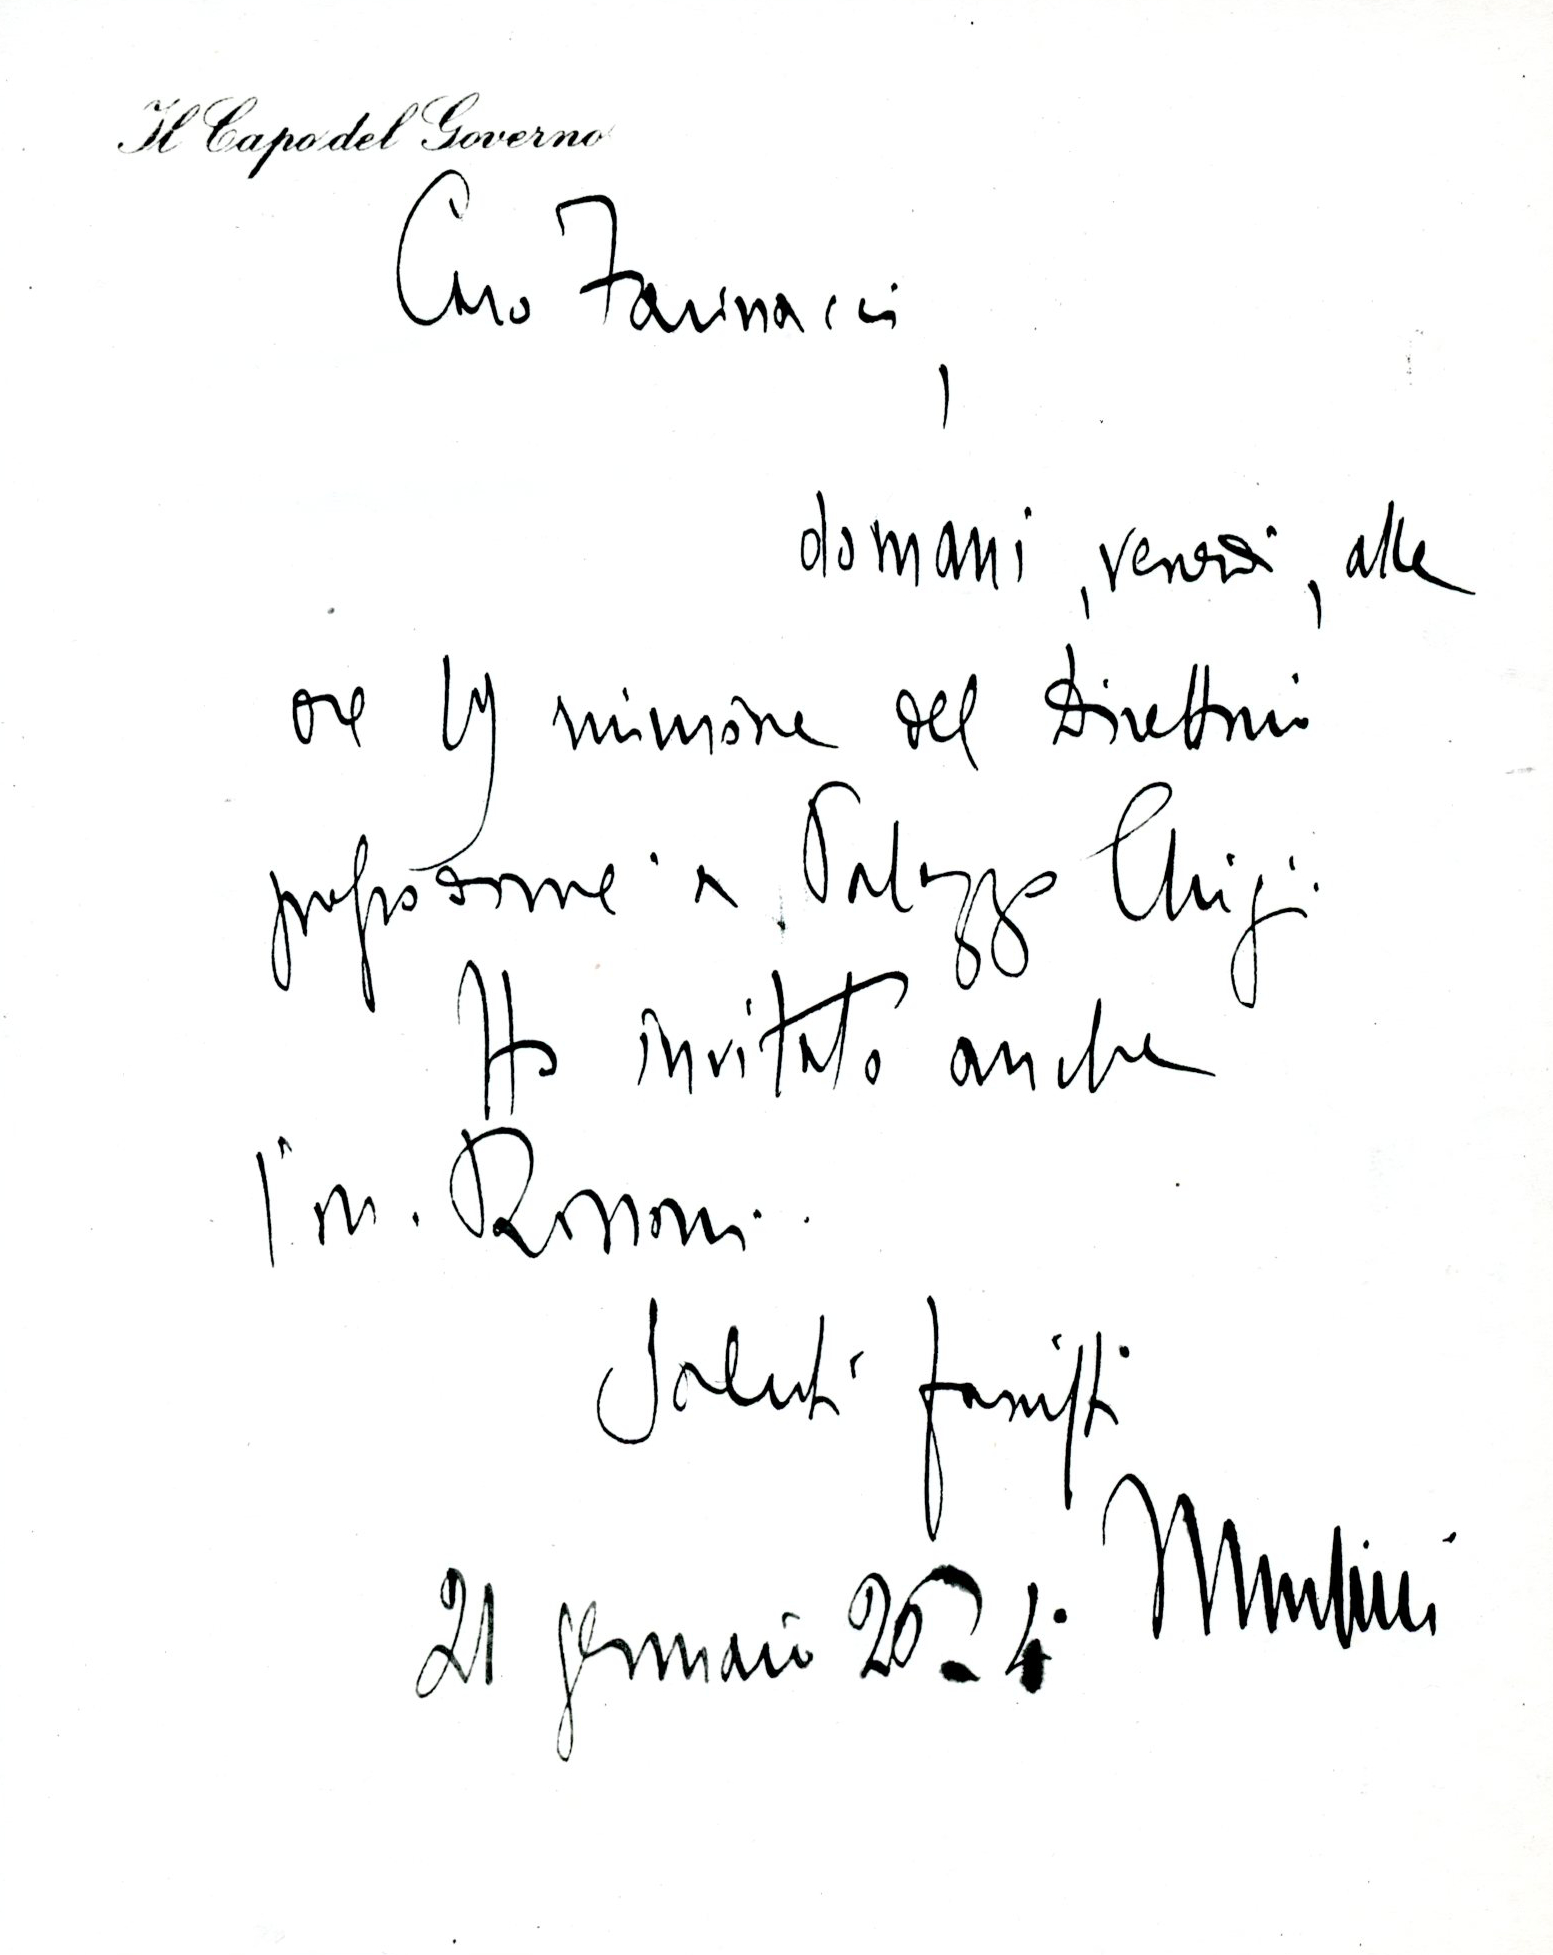 Il Capo del Governo
Caro Farinacci,
domani, venerdì, alle
ore 19 riunione del Direttorio
presso di me a Palazzo Chigi.
Ho invitato anche
l'on. Rossoni.
Saluti fascisti
Mussolini
21 gennaio 26